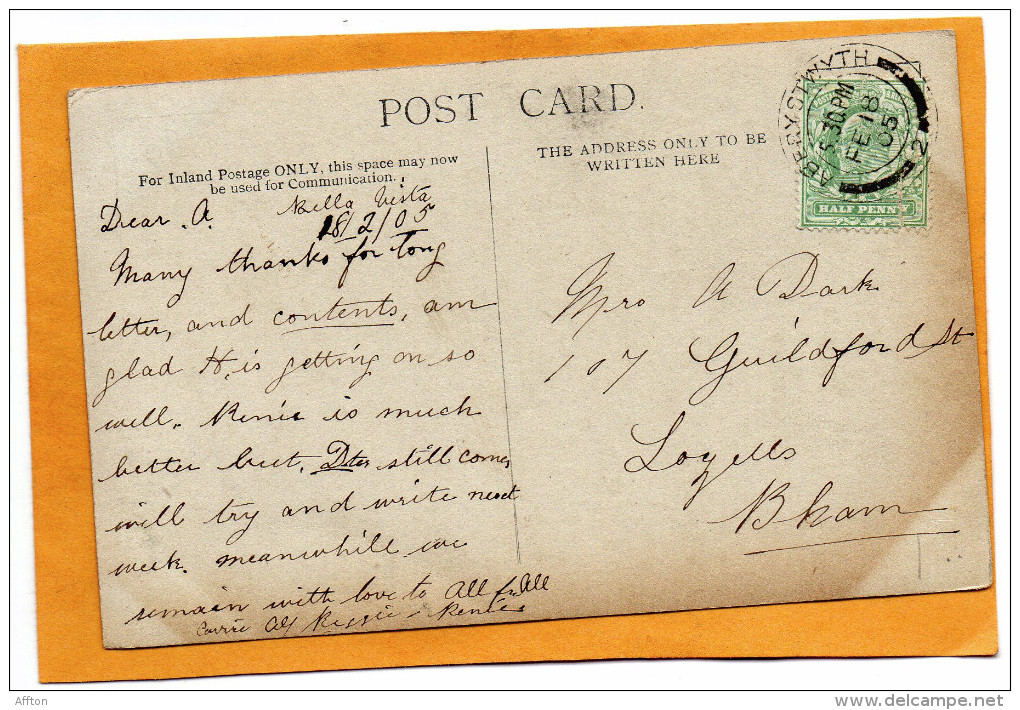 POST CARD.
For Inland Postage ONLY, this space may now
be used for Communication.
THE ADDRESS ONLY TO BE
WRITTEN HERE
ABERYSTWYTH
5.30PM
FE 18
05
2
HALF PENNY
Bella Vista
18/2/05
Dear A.
Many thanks for long
letter, and contents, am
glad H. is getting on so
well. Renie is much
better but. Dter still comes
will try and write next
week. meanwhile we
remain with love to All fr All
Carrie Alf Reggie & Renie
Mrs A Dark
107 Guildford St
Lozells
Bham
Affton
www.delcampe.net